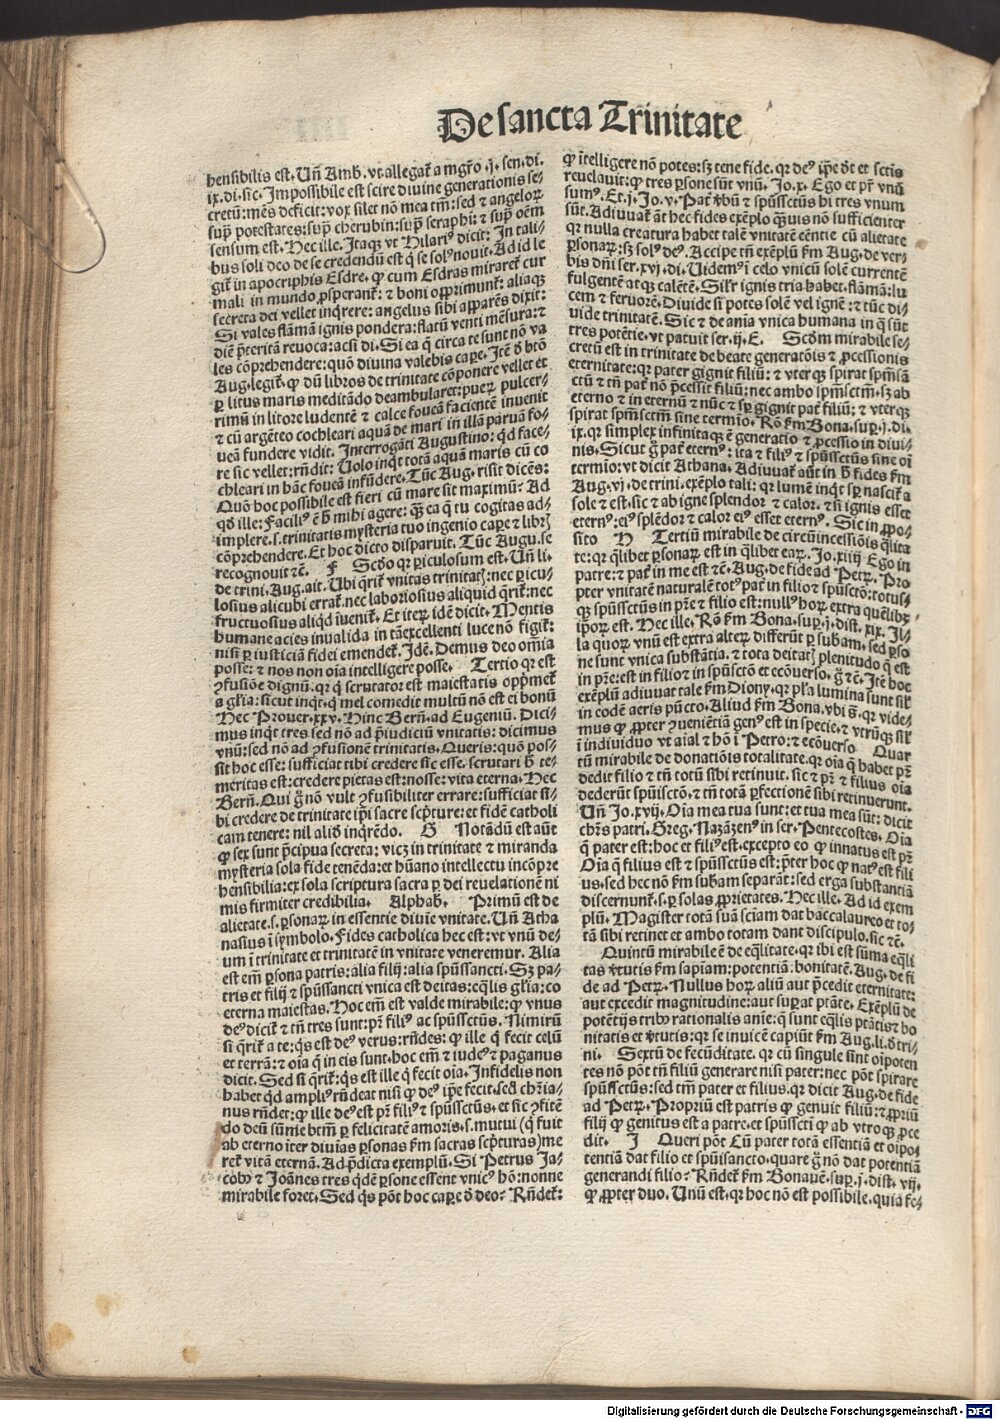 De sancta Trinitate
hensibilis est. Uñ Amb. vt allegat̃ a mgr̃o .j. sen. di.
ix. di. sic. Impossibile est scire divine generationis se-
cretũ: mẽs deficit: vox silet nõ mea tm̃: sed ⁊ angeloꝝ
sup̃ potestates: sup̃ cherubin: sup̃ seraphi: ⁊ sup̃ oẽm
sensum est. Hec ille. Itaqꝫ vt Hilariꝰ dicit: In tali-
bus soli deo de se credendũ est q̇ se solꝰ novit. Ad id le
git̃ in apocriphis Esdre. ꝙ cum Esdras miraret̃ cur
mali in mundo ꝓsperant̃: ⁊ boni opprimunt̃: aliaqꝫ
secreta dei vellet inq̇rere: angelus sibi apparẽs dixit:
Si vales flãmã ignis pondera: flatũ venti mẽsura: ⁊
diẽ p̃teritã revoca: acsi di. Si ea q̃ circa te sunt nõ va
les cõprehendere: quõ divina valebis cape. Itẽ ð btõ
Aug. legit̃. ꝙ dũ libros de trinitate cõponere vellet et
ꝑ litus maris meditãdo deambularet: pueꝝ pulcer-
rimũ in litore ludentẽ ⁊ calce foveã facientẽ invenit
⁊ cũ argẽteo cochleari aquã de mari in illã parvã fo-
veã fundere vidit. Interrogãti Augustino: qd face-
re sic vellet: rñdit: Uolo inq̇t totã aquã maris cũ co
chleari in hãc foveã infũdere. Tũc Aug. risit dicẽs:
Quõ hoc possibile est fieri cũ mare sit maximũ? Ad
qd̃ ille: Faciliꝰ ẽ h̃ mihi agere: qꝫ ea q̃ tu cogitas ad-
implere. s. trinitatis mysteria tuo ingenio capere ⁊ libꝝ
cõprehendere. Et hoc dicto disparuit. Tũc Augu. se
recognovit ⁊c̃. F Scd̃o qꝛ periculosum est. Uñ li.
de trini. Aug. ait. Ubi q̇rit̃ vnitas trinitatꝫ: nec pericu-
losius alicubi errat̃. nec laboriosius aliquid q̇rit̃: nec
fructuosius aliq̇d ĩvenit̃. Et iteꝝ idẽ dicit. Mentis
humane acies invalida in tã excellenti luce nõ figit̃:
nisi ꝑ iusticiã fidei emendet̃. Idẽ. Demus deo om̃ia
posse: ⁊ nos non oĩa intelligere posse. Tertio qꝛ est
ꝯfusiõe dignũ. qꝛ q̇ scrutator est maiestatis opp̃met̃
a gl̃ia: sicut inq̇t. q̇ mel comedit multũ nõ est ei bonũ
Hec Prouer. xxv. Hinc Berñ. ad Eugeniũ. Dici-
mus inq̇t tres sed nõ ad p̃iudiciũ vnitatis: dicimus
vnũ: sed nõ ad ꝯfusionẽ trinitatis. Queris: quõ pos-
sit hoc esse: sufficiat tibi credere sic esse. scrutari h̃ te-
meritas est: credere pietas est: nosse: vita eterna. Hec
Berñ. Qui g̃ nõ vult ꝯfusibiliter errare: sufficiat si-
bi credere de trinitate ip̃i sacre scp̃ture: et fidẽ catholi
cam tenere: nil aliđ inq̇rẽdo. G Notãdũ est aũt
ꝙ sex sunt p̃cipua secreta: vicꝫ in trinitate ⁊ miranda
mysteria sola fide tenẽda: et hũano intellectu incõpre
hensibilia: ex sola scriptura sacra ꝑ dei revelationẽ ni
mis firmiter credibilia. Alphab. Primũ est de
alietate. s. ꝑsonaꝝ in essentie divĩe vnitate. Uñ Atha
nasius ĩ symbolo. Fides catholica hec est: vt vnũ de-
um ĩ trinitate et trinitatẽ in vnitate veneremur. Alia
est em̃ ꝑsona patris: alia filij: alia spũssancti. Sꝫ pa-
tris et filij ⁊ spũssancti vnica est deitas: eq̃lis gl̃ia: co
eterna maiestas. Hoc em̃ est valde mirabile: ꝙ vnus
deꝰ dicit̃ ⁊ tñ tres sunt: pr̃ filiꝰ ac spũssctũs. Nimirũ
si q̇rit̃ a te: q̇s est deꝰ verus: rñdes: ꝙ ille q̇ fecit celũ
et terrã: ⁊ oĩa q̃ in eis sunt. hoc em̃ ⁊ iudeꝰ ⁊ paganus
dicit. Sed si q̇rit̃: q̇s est ille q̇ fecit oĩa. Infidelis non
habet qd ampliꝰ rñdeat nisi ꝙ deꝰ ip̃e fecit. sed chr̃ia-
nus rñdet: ꝙ ille deꝰ est pr̃ filiꝰ ⁊ spũssctũs. et sic ꝯfitẽ
do deũ sũme btm̃ ꝑ felicitatẽ amoris. s. mutui (q̇ fuit
ab eterno ĩter divĩas ꝑsonas fm̃ sacras scp̃turas) me
ret̃ vitã eternã. Ad p̃dicta exemplũ. Si Petrus Ja-
cobꝰ ⁊ Joãnes tres q̇dẽ ꝑsone essent vnicꝰ hõ: nonne
mirabile foret. Sed q̇s põt hoc capere ð deo? Rñdet̃:
ꝙ ĩtelligere nõ potes: sꝫ tene fide. qꝛ deꝰ ip̃e ðt et sctĩs
revelauit: ꝙ tres ꝑsone sũt vnũ. Jo. x. Ego et pr̃ vnũ
sumꝰ. Et. j. Jo. v. Pat̃ v̾bũ ⁊ spũssctũs hi tres vnum
sũt. Adiuuat̃ ãt hec fides exẽplo q̃uis nõ sufficienter
qꝛ nulla creatura habet talẽ vnitatẽ eẽntie cũ alietate
ꝑsonaꝝ: sꝫ solꝰ deꝰ. Accipe tñ exẽplũ fm̃ Aug. de ver-
bis dñi ser. xvj. di. Uidemꝰ ĩ celo vnicũ solẽ currentẽ
fulgentẽ atqꝫ calẽtẽ. Silꝛ ignis tria habet. flãmã: lu
cem ⁊ feruorẽ. Divide si potes solẽ vel ignẽ: ⁊ tũc di-
vide trinitatẽ. Sic ⁊ de anĩa vnica humana in q̃ sũt
tres potẽtie. vt patuit ser. ij. E. Scdm̃ mirabile se-
cretũ est in trinitate de beate generatõis ⁊ ꝓcessionis
eternitate: qꝛ pater gignit filiũ: ⁊ vterqꝫ spirat spm̃sã
ctũ ⁊ tñ pat̃ nõ p̃cessit filiũ: nec ambo ipm̃sctm̃. sꝫ ab
eterno ⁊ in eternũ ⁊ nũc ⁊ sꝑ gignit pat̃ filiũ: ⁊ vterqꝫ
spirat spm̃sctm̃ sine termĩo. Rõ fm̃ Bona. sup̃. j. di.
ix. qꝛ simplex infinitaqꝫ ẽ generatio ⁊ ꝓcessio in divi-
nis. Sicut g̃ pat̃ eternꝰ: ita ⁊ filiꝰ ⁊ spũssctũs sine oĩ
termĩo: vt dicit Athana. Adiuuat̃ aũt in h̃ fides fm̃
Aug. vj. de trini. exẽplo tali: qꝛ lumẽ inq̇t sꝑ nascit̃ a
sole ⁊ est. sic ⁊ ab igne splendor ⁊ calor. ⁊ si ignis esset
eternꝰ: eiꝰ splẽdor ⁊ calor eiꝰ esset eternꝰ. Sic in ꝓpo-
sito H Tertiũ mirabile de circũincessiõis q̃lita
te: qꝛ q̃libet ꝑsonaꝝ est in q̃libet eaꝝ. Jo. xiiij Ego in
patre: ⁊ pat̃ in me est ⁊c̃. Aug. de fide ad Petꝝ. Pro
pter vnitatẽ naturalẽ totꝰ pat̃ in filio ⁊ spũsctõ: totus-
qꝫ spũssctũs in pr̃e ⁊ filio est: nullꝰ hoꝝ extra quẽlibꝫ
ip̃oꝝ est. Hec ille. Rõ fm̃ Bona. sup̃. j. dist. xix. Il-
la quoꝝ vnũ est extra alteꝝ differũt ꝑ subam̃. sed ꝑso
ne sunt vnica substãtia. ⁊ tota deitatꝫ plenitudo q̃ est
in pr̃e: est in filio ⁊ in spũsctõ et ecõuerso. g̃ ⁊c̃. Itẽ hoc
exẽplũ adiuuat tale fm̃ Diony. qꝛ pl̃a lumina sunt sil̃
in eodẽ aeris pũcto. Aliud fm̃ Bona. vbi s̃. qꝛ vide-
mus ꝙ ꝓpter ꝯuenĩẽtiã genꝰ est in specie. ⁊ vtrũqꝫ sil̃
ĩ individuo vt aĩal ⁊ hõ ĩ Petro: ⁊ ecõuerso Quar
tũ mirabile de donatiõis totalitate. qꝛ oĩa q̃ habet pr̃
dedit filio ⁊ tñ totũ sibi retinuit. sic ⁊ pr̃ ⁊ filius oĩa
dederũt spũisctõ. ⁊ tñ totã ꝑfectionẽ sibi retinuerunt.
Uñ Jo. xvij. Oĩa mea tua sunt: et tua mea sũt: dicit
chr̃s patri. Greg. Nazãzenꝰ in ser. Pentecostes. Oĩa
q̃ pater est: hoc et filiꝰ est. excepto eo ꝙ innatus est pr̃
Oĩa q̃ filius est ⁊ spũssctũs est: p̃ter hoc ꝙ natꝰ est fili
us. sed hec nõ fm̃ subam̃ separãt: sed erga substantiã
discernunt̃. s. ꝑ solas ꝓprietates. Hec ille. Ad id exem
plũ. Magister totã suã sciam̃ dat baccalaureo et to-
tã sibi retinet et ambo totam dant discipulo. sic ⁊c̃.
Quintũ mirabile ẽ de eq̃litate. qꝛ ibi est sũma eq̃li
tas v̾tutis fm̃ sapiam̃: potentiã: bonitatẽ. Aug. de fi
de ad Petꝝ. Nullus hoꝝ aliũ aut p̃cedit eternitate:
aut excedit magnitudine: aut superat ptãte. Exẽplũ de
potẽtijs tribꝰ rationalis anĩe: q̃ sunt eq̃lis ptãtis ⁊ bo
nitatis et v̾tutis: qꝛ se invicẽ capiũt fm̃ Aug. li. ð tri-
ni. Sextũ de fecũditate. qꝛ cũ singule sint oĩpoten
tes nõ põt tñ filiũ generare nisi pater: nec põt spirare
spũssctũs: sed tm̃ pater et filius. qꝛ dicit Aug. de fide
ad Petꝝ. Propriũ est patris ꝙ genuit filiũ: ⁊ ꝓpriũ
filij ꝙ genitus est a patre. et spũsscti ꝙ ab vtroqꝫ ꝓce
dit. J Queri põt Cũ pater totã essentiã et oĩpo-
tentiã dat filio et spũisancto. quare g̃ nõ dat potentiã
generandi filio? Rñdet̃ fm̃ Bonavẽ. sup̃. j. dist. vij.
ꝙ ꝓpter duo. Unũ est. qꝛ hoc nõ est possibile. quia fe-
Digitalisierung gefördert durch die Deutsche Forschungsgemeinschaft - DFG